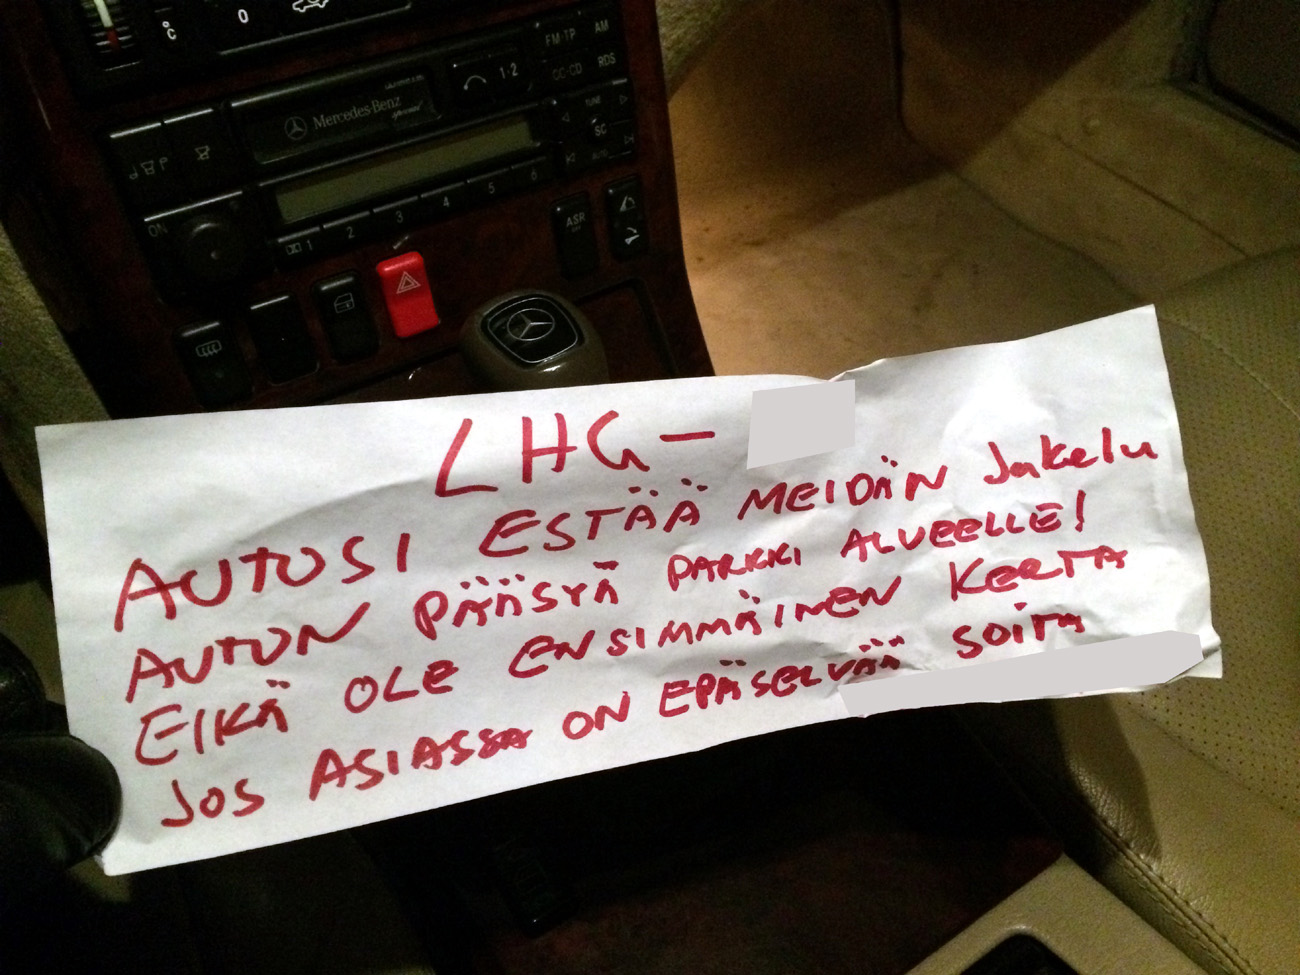 °C
0
FM·TP
AM
1·2
CC·CD
RDS
Mercedes-Benz
special
TUNE
SC
ON
1
2
3
4
5
6
ASR
LHG-
AUTOSI ESTÄÄ MEIDÄN Jakelu
AUTON PÄÄSYÄ PARKKI ALUEELLE!
EIKÄ OLE ENSIMMÄINEN KERTA
JOS ASIASSA ON EPÄSELVÄÄ SOITA